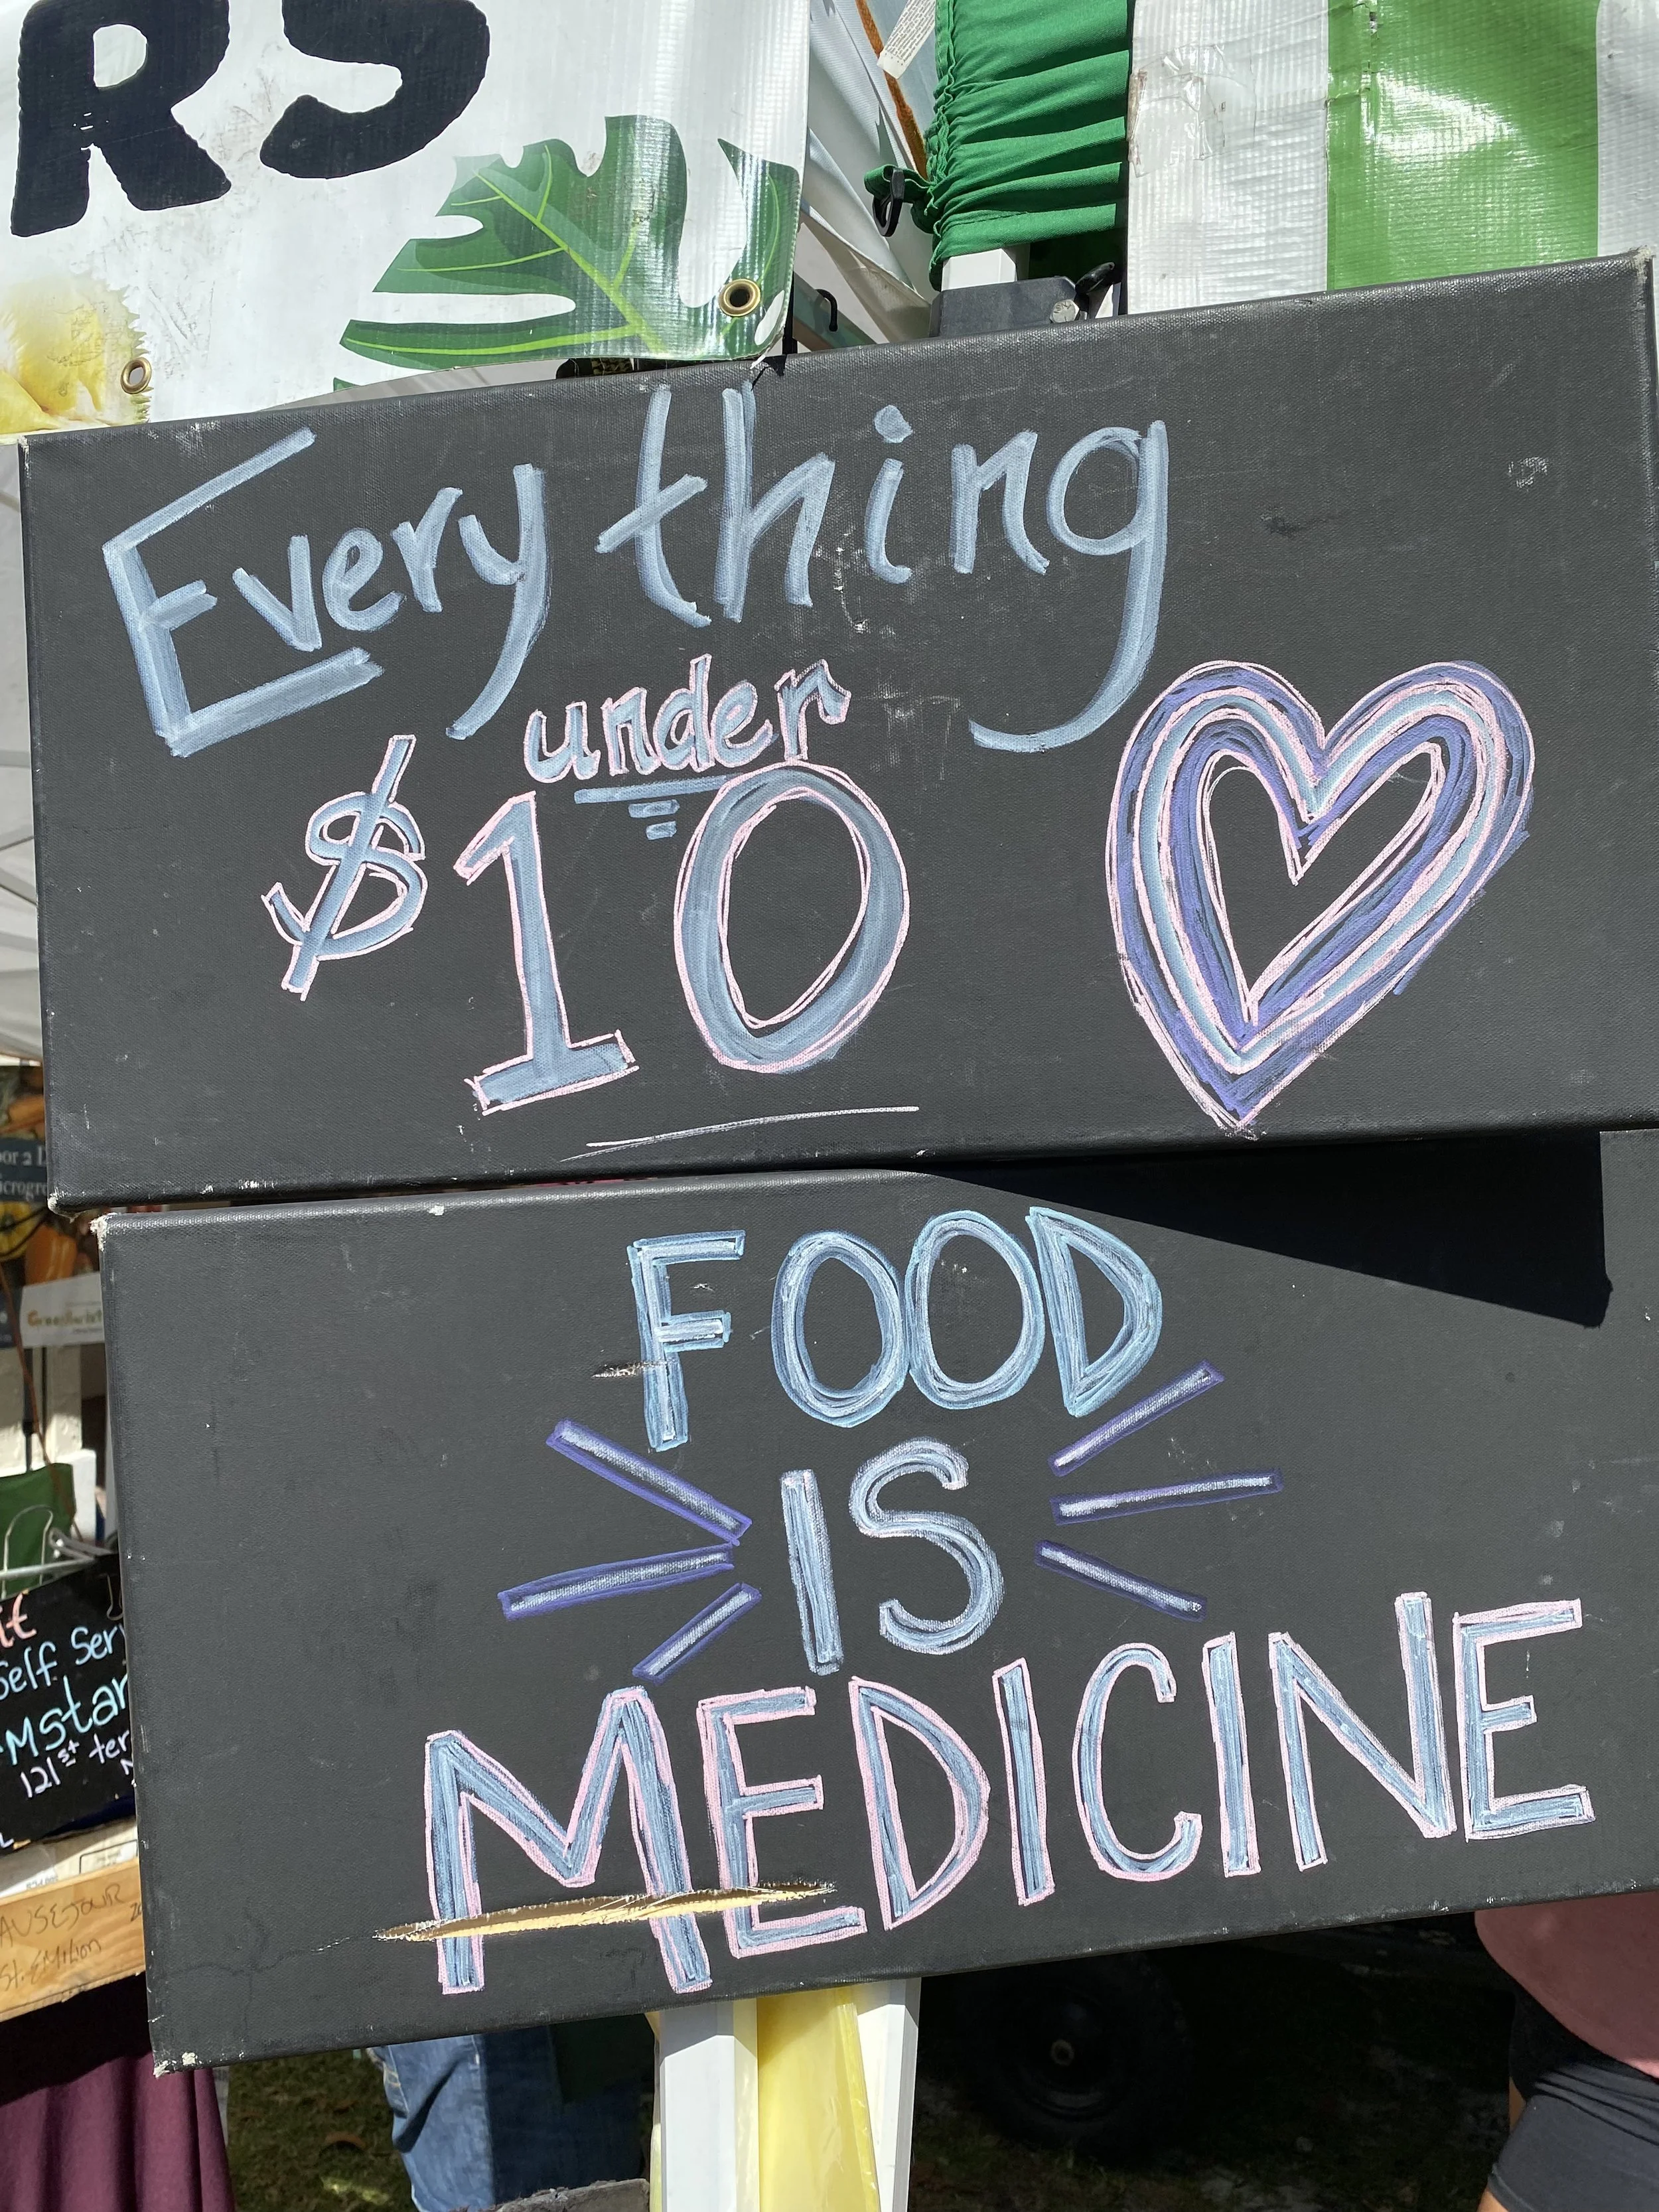 RS
Everything
under
$10
FOOD
IS
MEDICINE
Self Ser
Mstar
121st ter
St. EMilion